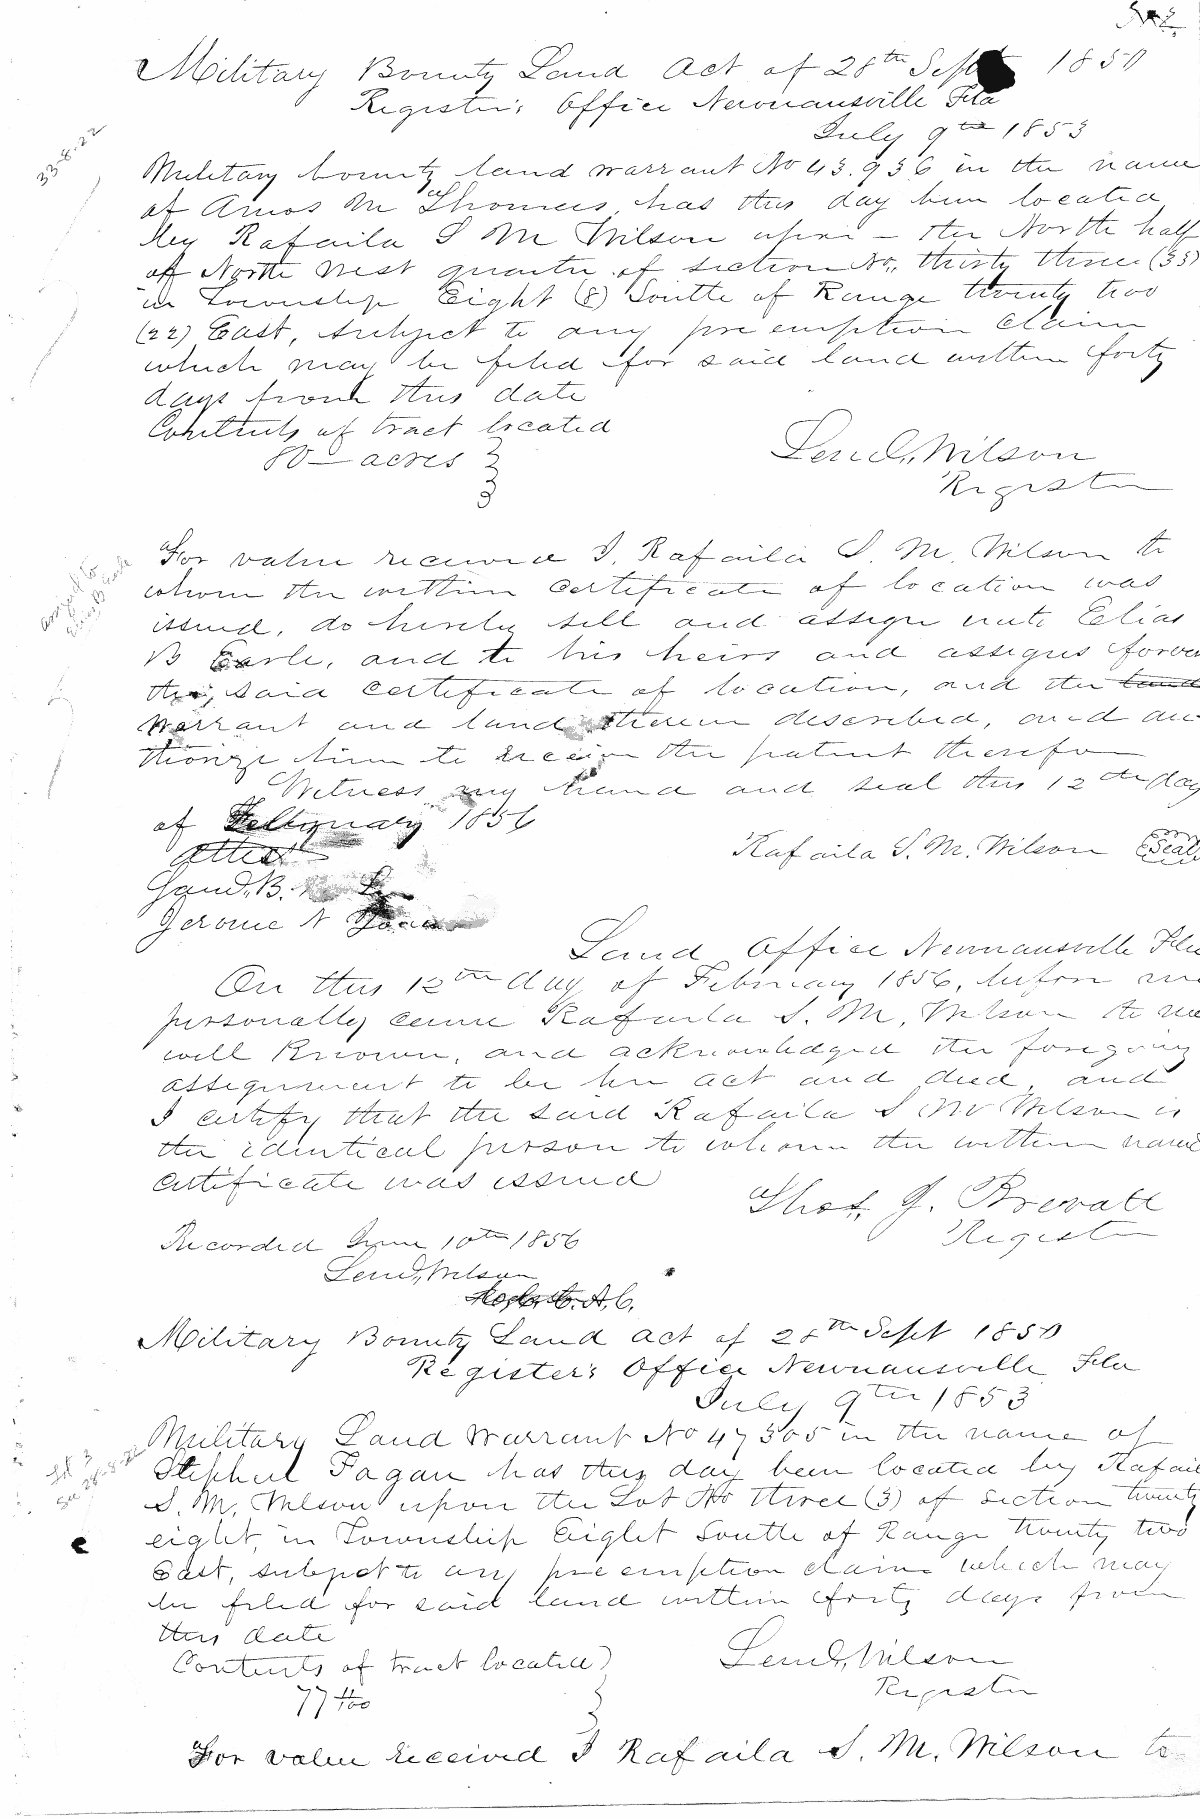 Military Bounty Land Act of 28th Sept 1850
Register's Office Newnansville Fla
July 9th 1853
33-8-22
Military bounty land warrant No 43.936 in the name
of Amos M Thomas, has this day been located
by Rafaila S M Wilson upon - the North half
of North West quarter of section No, thirty three (33)
in Township Eight (8) South of Range twenty two
(22) East, subject to any pre emption claim
which may be filed for said land within forty
days from this date
Contents of tract located
80 — acres
Lemd., Wilson
Register
For value received I, Rafaila S. M. Wilson to
whom the within certificate of location was
assigned to
Elias B Earle
issued, do hereby sell and assign unto Elias
B Earle, and to his heirs and assigns forever
the, said certificate of location, and the land
warrant and land therein described, and au-
thorize him to receive the patent therefor
Witness my hand and seal this 12th day
of February 1856
Attest
Rafaila S. M. Wilson (Seal)
B.
Jerome N
Land Office Newnansville Fla
On this 12th day of February 1856, before me
personally came Rafaila S. M. Wilson to me
well known, and acknowledged the foregoing
assignment to be her act and deed, and
I certify that the said Rafaila S M Wilson is
the identical person to whom the within named
certificate was issued
Thos. J. Prevatt
Register
Recorded June 10th 1856
Lemd., Wilson
C. A. C.
Military Bounty Land act of 28th Sept 1850
Register's Office Newnansville Fla
July 9th 1853
Military Land Warrant No 47305 in the name of
Stephen Fagan has this day been located by Rafaila
S. M. Wilson upon the Lot No three (3) of section twenty
eight, in Township Eight South of Range twenty two
East, subject to any pre emption claim which may
be filed for said land within forty days from
this date
Contents of tract located
Lemd., Wilson
Register
For value received I Rafaila S. M. Wilson to